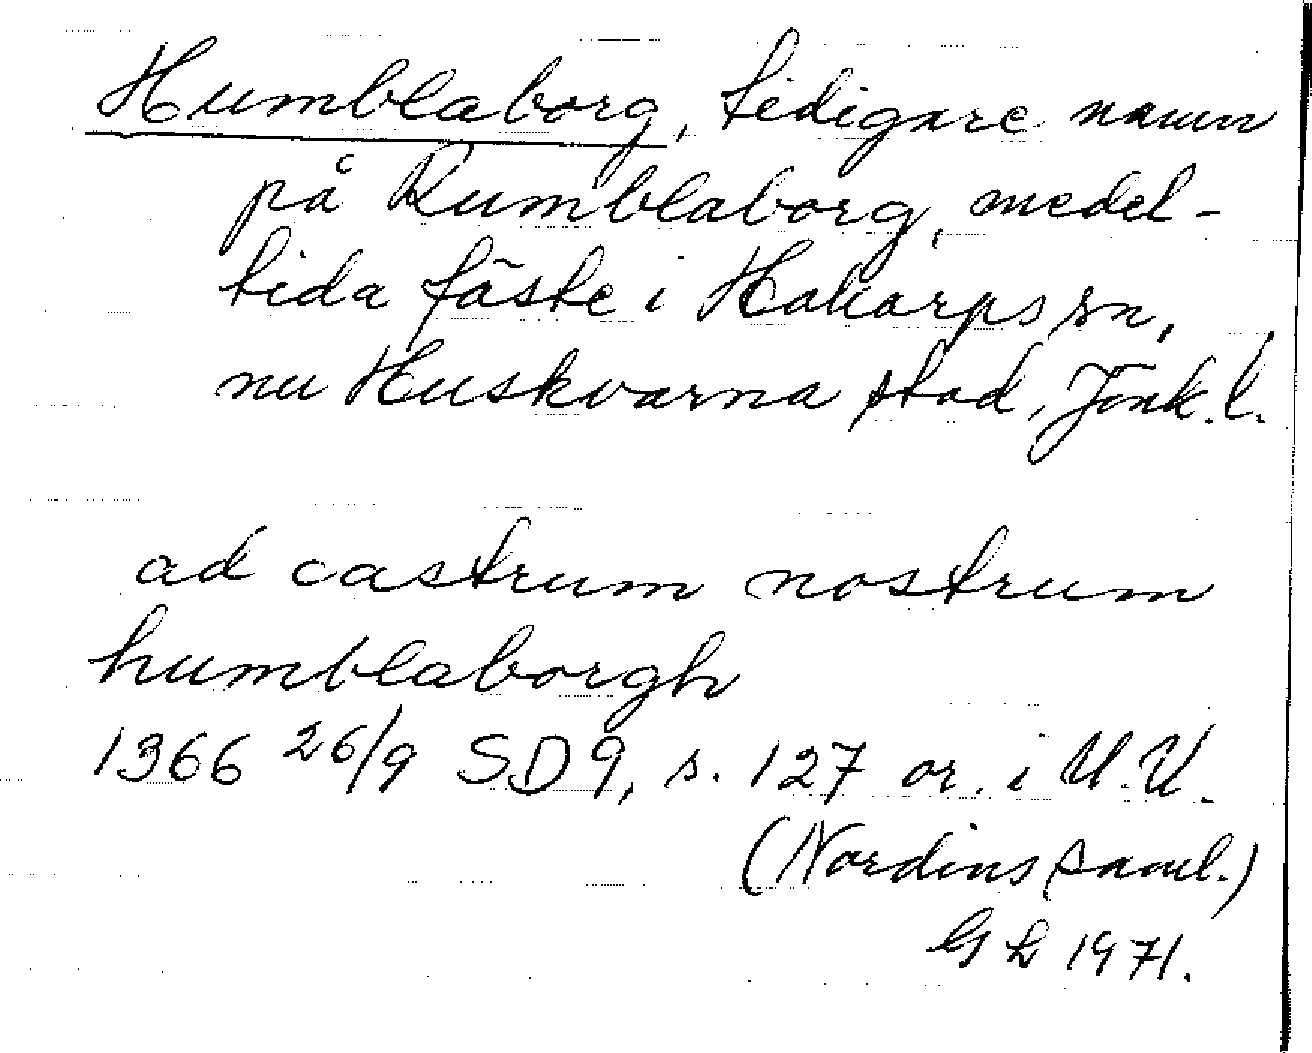 Humblaborg, tidigare namn
på Rumblaborg, medel-
tida fäste i Hakarps sn,
nu Huskvarna stad, Jönk. l.
ad castrum nostrum
humblaborgh
1366 26/9 SD 9, s. 127 or. i U.U.
(Nordins saml.)
G L 1971.